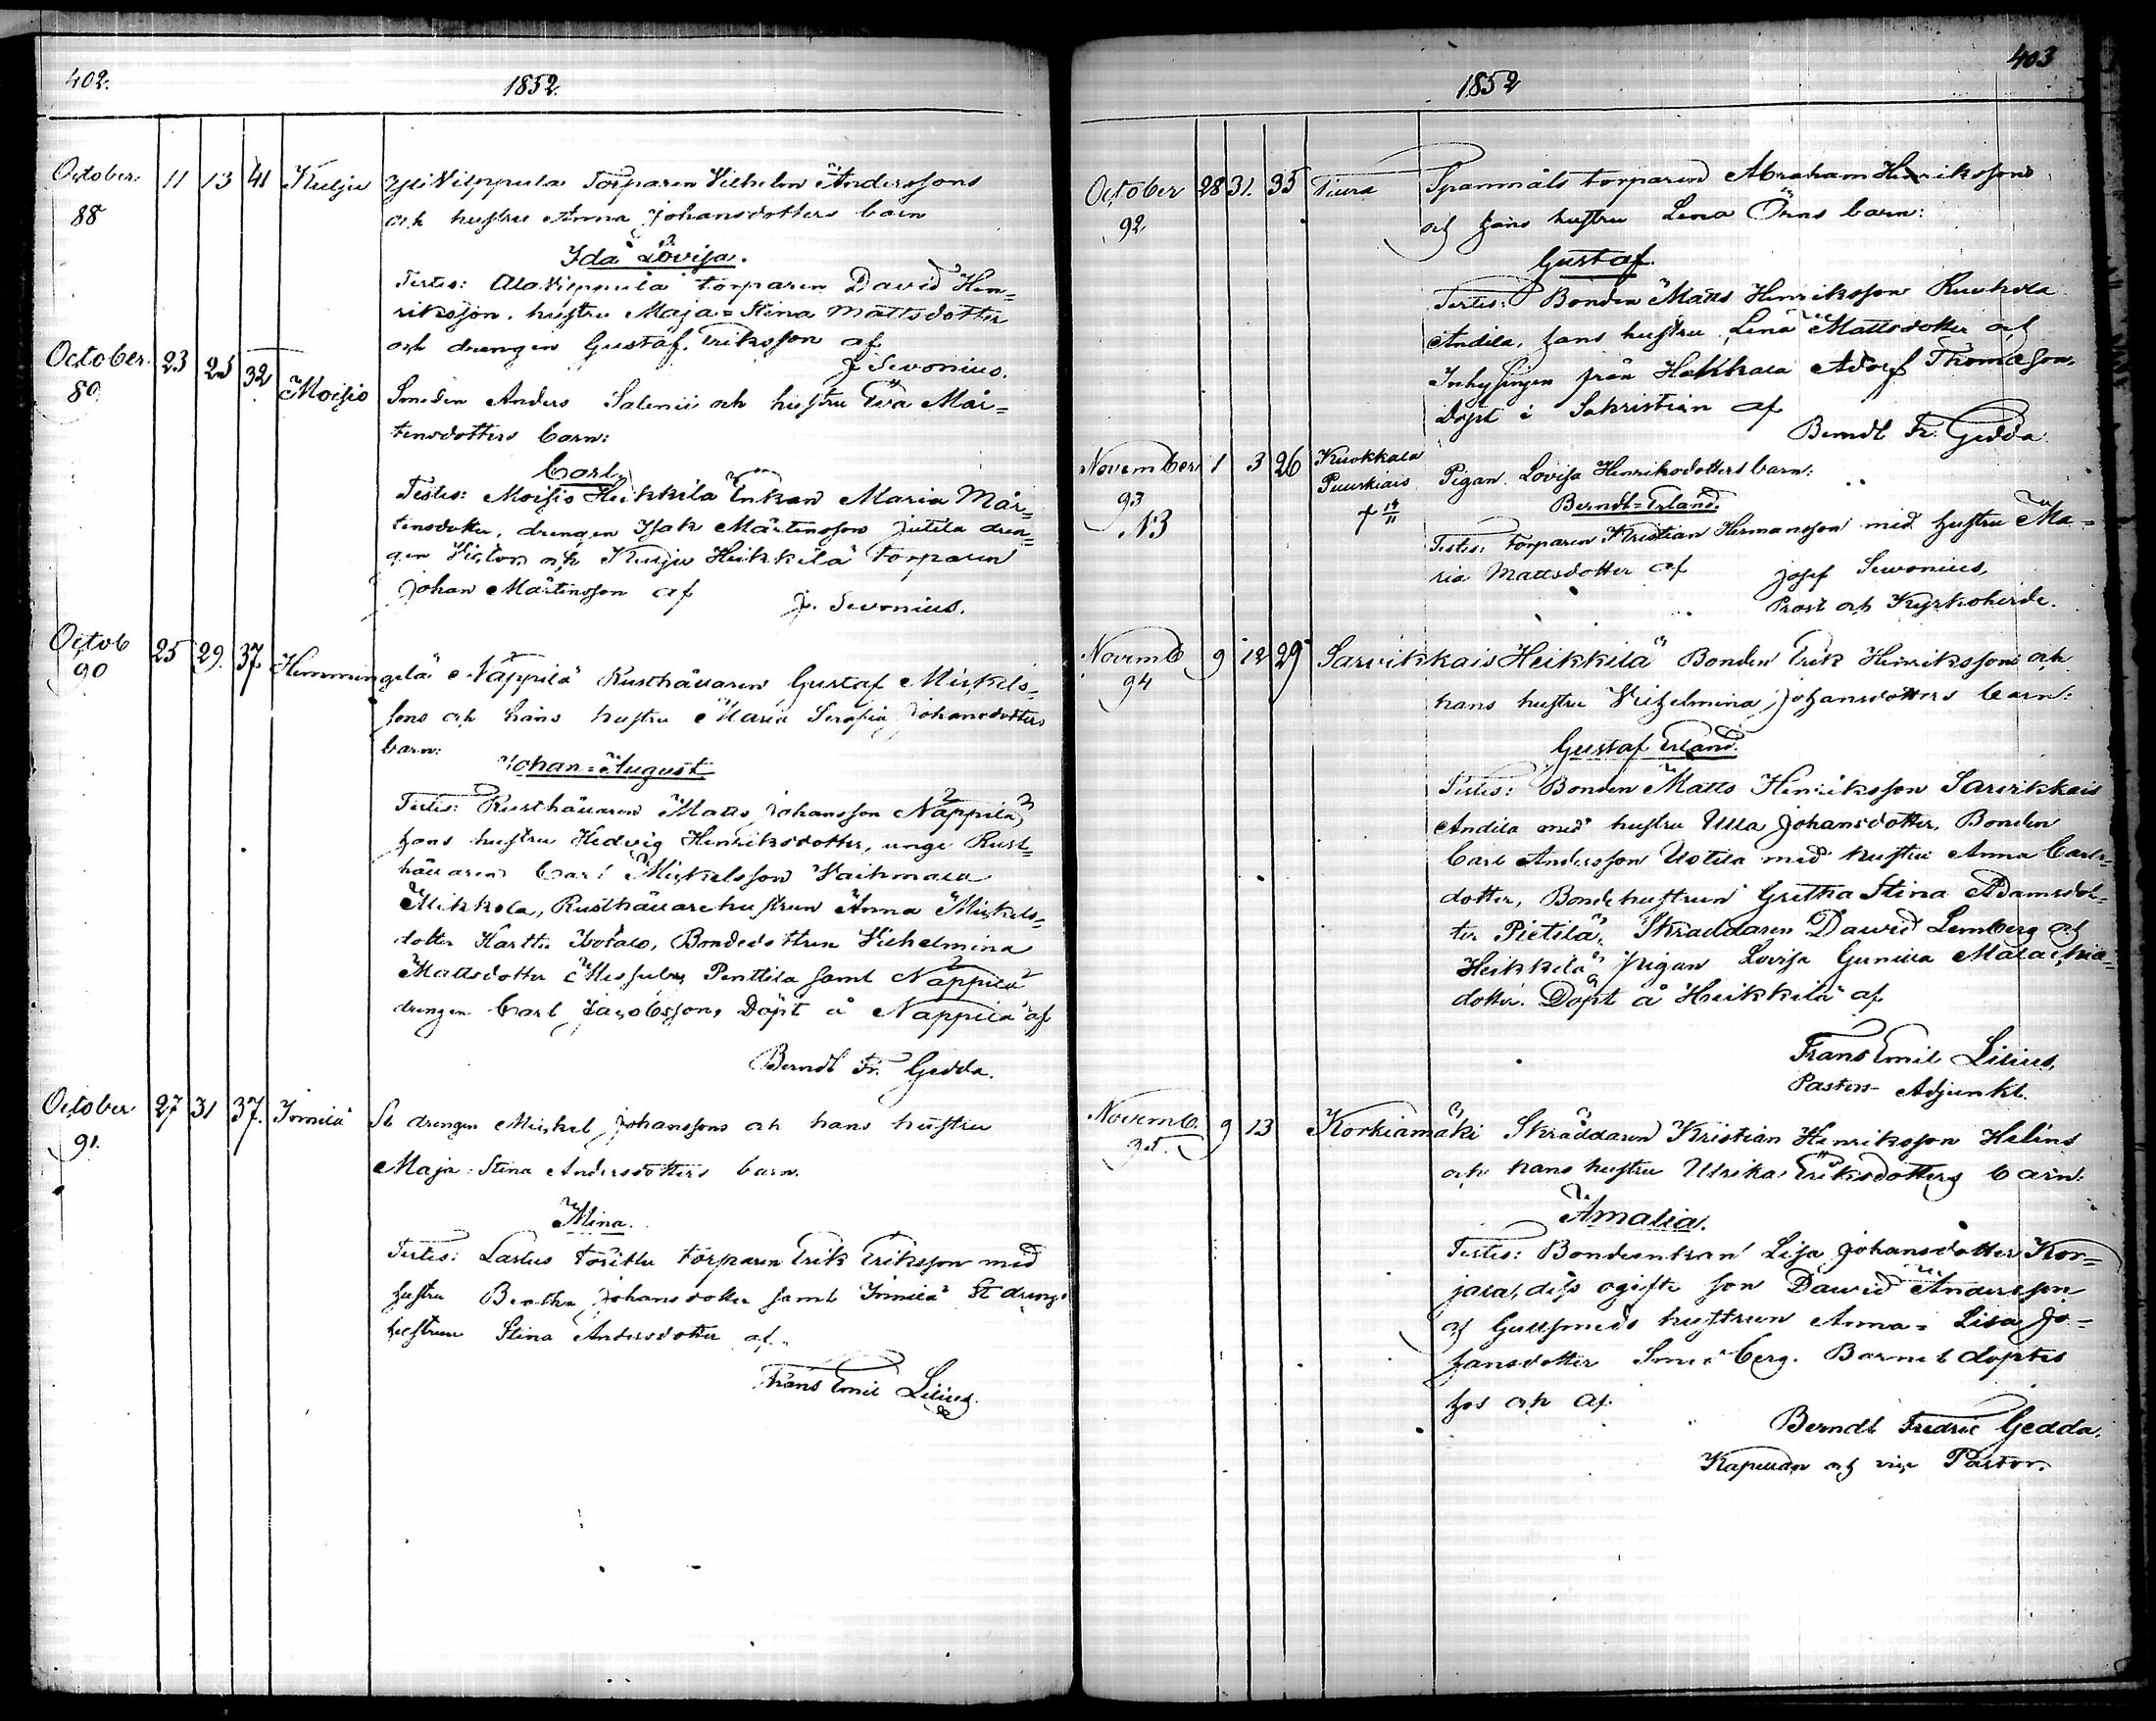 402.
1852.
October 11 13 41 Kulju Yli Nilppula Torparen Wilhelm Anderssons
88 och hustru Anna Johansdotters barn
Ida Lovisa.
Testes: Ala Nilppula torparen David Hen=
riksson, hustru Maja=Stina Mattsdotter
och drengen Gustaf Eriksson af
J. Sevonius.
October 23 25 32 Moisio Smeden Anders Salenii och hustru Eva Mår=
89 tensdotters barn:
Carl
Testes: Moisio Heikkilä Enkan Maria Mår=
tensdotter, drengen Isak Mårtensson Jutila dren=
gen Victor och Kulju Heikkilä torparen
Johan Mårtensson af J. Sevonius.
Octob 25 29. 37. Hemmingilä Näppilä Rusthållaren Gustaf Mickels=
90 sons och hans hustru Maria Serafia Johansdotters
barn:
Johan=August
Testes: Rusthållaren Matts Johansson Näppilä,
hans hustru Hedvig Henriksdotter, unge Rust=
hållaren Carl Mickelsson Vaihmala
Mikkola, Rusthållarehustrun Anna Mickels=
dotter Hartti, Bondedottren Vilhelmina
Mattsdotter Penttila samt Näppilä
drengen Carl Jacobsson, Döpt å Näppilä af
Berndt Fr. Gedda.
October 27 31 37. Innilä St drengen Mickel Johanssons och hans hustru
91. Maja=Stina Andersdotters barn.
Mina.
Testes: Torittu torparen Erik Eriksson med
hustru Beatha Johansdotter samt Innilä St dreng=
hustrun Stina Andersdotter af
Frans Emil Lilius.
403
1852
October 28 31. 35 Tiura Spanmåls torparen Abraham Henrikssons
92. och hans hustru Lena Örns barn:
Gustaf.
Testes: Bonden Matts Henriksson Ruokola
Andila, hans hustru Lena Mattsdotter och
Inhysingen från Hakkala Adolf Thomasson,
Döpt i Sakristian af
Berndt Fr. Gedda.
November 1 3 26 Kuokkala Pigan Lovisa Henriksdotters barn:
93 Puurkiais
NB † 14/11
Berndt=Erland.
Testes: Torparen Kristian Hermansson med hustru Ma=
ria Mattsdotter af Josef Sevonius,
Prost och Kyrkoherde.
Novemb 9 12 29 Sarvikkais Heikkilä Bonden Erik Henrikssons och
94 hans hustru Vilhelmina Johansdotters barn:
Gustaf Erland.
Testes: Bonden Matts Henriksson Sarvikkais
Andila med hustru Ulla Johansdotter, Bonden
Carl Andersson Uotila med hustru Anna Carls=
dotter, Bondehustrun Gretha Stina Adamsdot=
ter Pietilä, Skräddaren David Lemberg och
Heikkilä pigan Lovisa Gunilla Malachia=
dotter. Döpt å Heikkilä af
Frans Emil Lilius,
Pastors Adjunkt.
Novemb. 9 13 Korkiamäki Skräddaren Kristian Henriksson Helins
och hans hustru Ulrika Eriksdotters barn:
Amalia.
Testes: Bondeenkan Lisa Johansdotter Kor=
jala, dess ogifte son David Andersson
och Gullsmeds hustrun Anna=Lisa Jo=
hansdotter Smedberg. Barnet döptes
hos och af
Berndt Fredric Gedda.
Kapellan och vice Pastor.